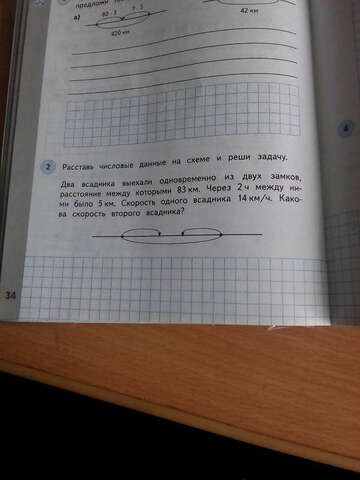 предложи
а) 80 · 3 ? · 3
420 км
42 км
4
2 Расставь числовые данные на схеме и реши задачу.
Два всадника выехали одновременно из двух замков,
расстояние между которыми 83 км. Через 2 ч между ни-
ми было 5 км. Скорость одного всадника 14 км/ч. Како-
ва скорость второго всадника?
34